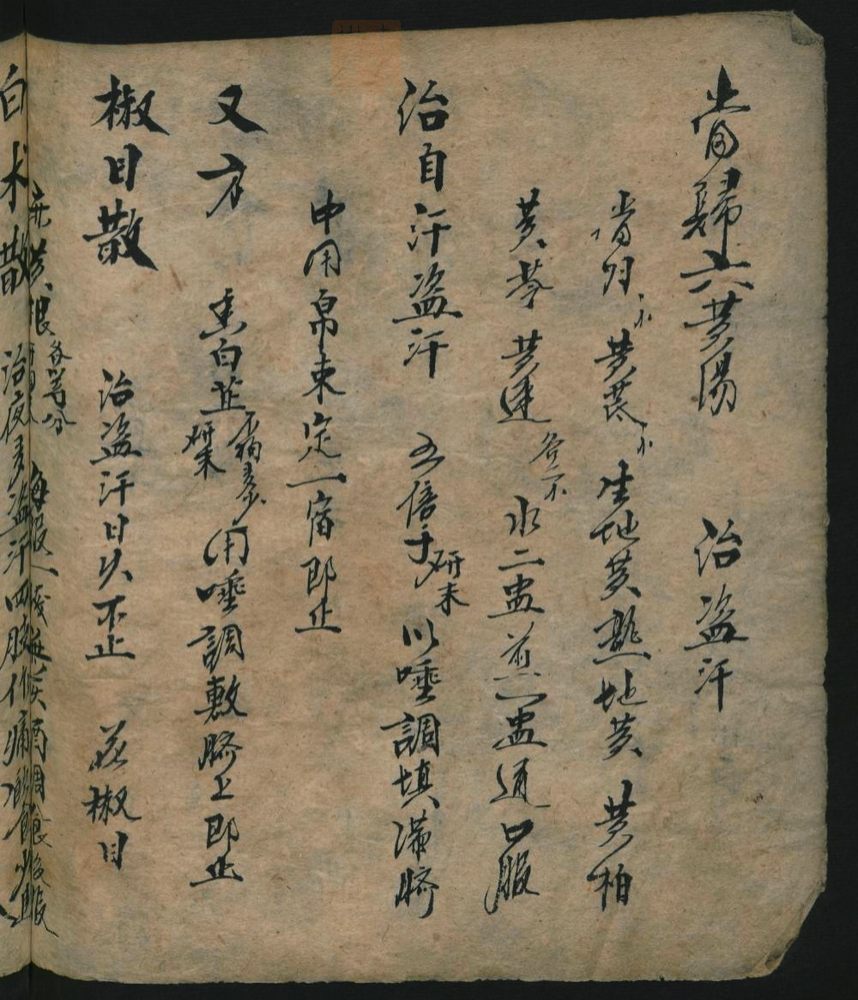 當歸六黃湯 治盜汗
當归 黃芪 生地黃 熟地黃 黃柏
黃芩 黃連 各一 水二盅煎一盅通口服
治自汗盜汗 五倍子研末 以唾調填滿臍
中用帛束定一宿即止
又方 白芷 研末 用唾調敷臍上即止
椒目散 治盜汗日久不止 花椒目
根 各等分 每服一錢 酒調 食後服
白术散 治夜多盜汗四肢 痛